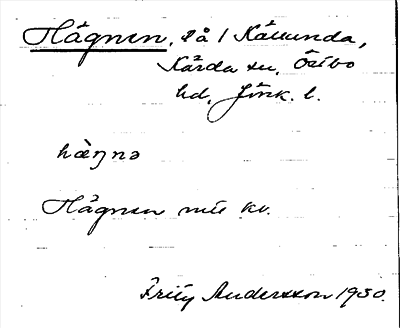 Hägnen, då / Källunda,
Kärda sn. Östbo
hd. Jönk. l.
hàŋnə
Hägnen mil kv.
Fritz Andersson 1930.